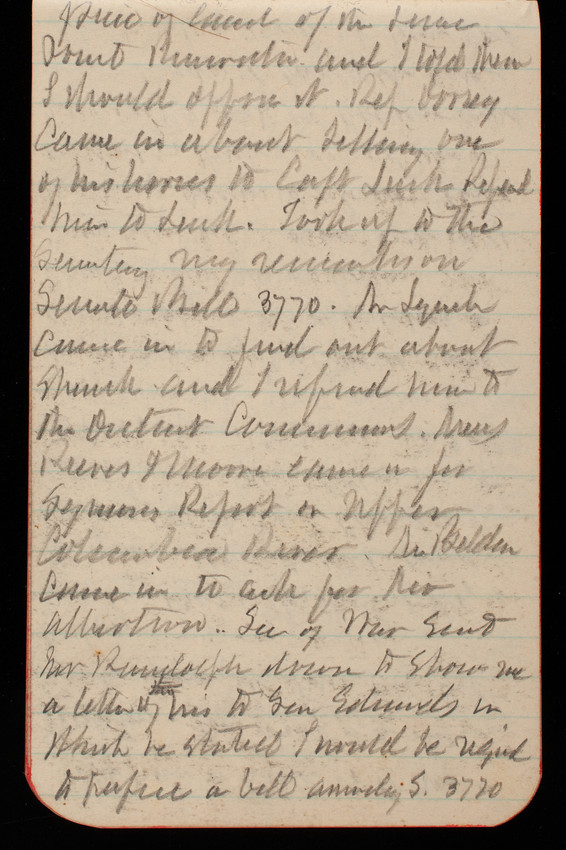 piece of land of the
and I told them
I should oppose it. Rep Dorsey
came in about selling one
of his horses to Capt Lusk Refered
him to Lusk. Took up to the
Secretary my remarks on
Senate Bill 3770. Mr Lynch
came in to find out about
and I refered him to
the District Commrs.
Reeves & Moore came in for
Symons Report on Upper
Columbia River. Mr Belden
came in to ask for his
Sec of War Sent
Mr Randolph down to show me
a letter of his to Sen Edmunds in
which he stated I would be reqired
to prepare a bill amendg S. 3770